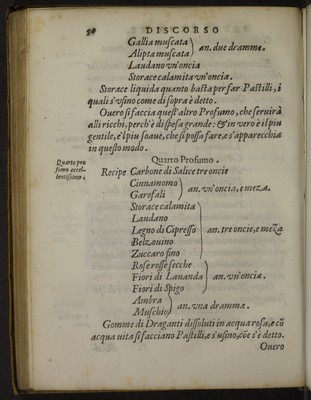 20 DISCORSO
Gallia muscata
Alipta muscata } an. due dramme.
Laudano vn'oncia
Storace calamita vn'oncia.
Storace liquida quanto basta per far Pastilli, i
quali s'vsino come di sopra è detto.
Ouero si faccia quest'altro Profumo, che seruirà
alli ricchi, perch'è di spesa grande: & in vero è il piu
gentile, e'l piu soauè, che si possa fare, e s'apparecchia
in questo modo.
Quarto pro
fumo eccel-
lentissimo.
Quarto Profumo.
Recipe Carbone di Salice tre oncie
Cinnamomo
Garofali } an. vn'oncia, e meza.
Storace calamita
Laudano
Legno di Cipresso } an. tre oncie, e meza
Belzouino
Zuccaro fino
Rose rosse secche
Fiori di Lauanda } an. vn'oncia.
Fiori di Spigo
Ambra
Muschio } an. vna dramma.
Gomme di Draganti dissoluti in acqua rosa, e cõ
acqua vita si facciano Pastilli, e s'vsino, cõe s'è detto.
Ouero